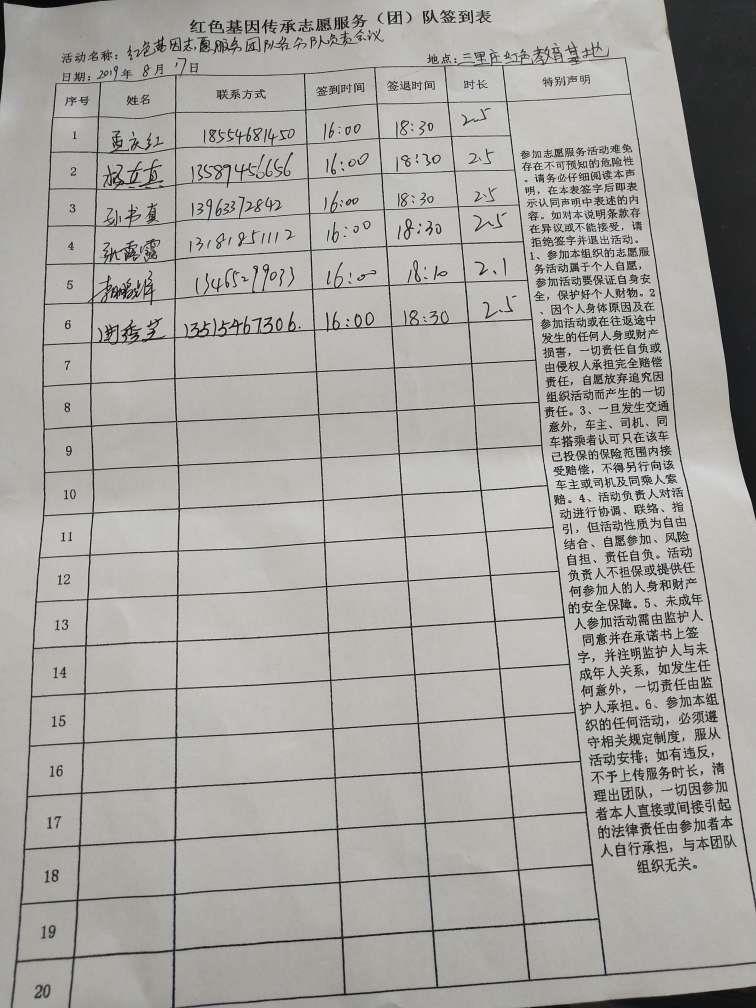 红色基因传承志愿服务（团）队签到表
活动名称：红色基因志愿服务团队各分队负责会议
日期：2019年8月17日 地点：三里庄红色教育基地
序号 姓名 联系方式 签到时间 签退时间 时长 特别声明
1 孟庆红 18554681450 16:00 18:30 2.5
2 杨立真 13589456656 16:00 18:30 2.5
3 孙书真 13963372842 16:00 18:30 2.5
4 张露露 13181851112 16:00 18:30 2.5
5 13465299033 16:00 18:10 2.1
6 周秀芝 13515467306. 16:00 18:30 2.5
7
8
9
10
11
12
13
14
15
16
17
18
19
20
参加志愿服务活动难免
存在不可预知的危险性
。请务必仔细阅读本声
明，在本表签字后即表
示认同声明中表述的内
容。如对本说明条款存
在异议或不能接受，请
拒绝签字并退出活动。
1、参加本组织的志愿服
务活动属于个人自愿，
参加活动要保证自身安
全，保护好个人财物。2
、因个人身体原因及在
参加活动或在往返途中
发生的任何人身或财产
损害，一切责任自负或
由侵权人承担完全赔偿
责任，自愿放弃追究因
组织活动而产生的一切
责任。3、一旦发生交通
意外，车主、司机、同
车搭乘者认可只在该车
已投保的保险范围内接
受赔偿，不得另行向该
车主或司机及同乘人索
赔。4、活动负责人对活
动进行协调、联络、指
引，但活动性质为自由
结合、自愿参加、风险
自担、责任自负。活动
负责人不担保或提供任
何参加人的人身和财产
的安全保障。5、未成年
人参加活动需由监护人
同意并在承诺书上签
字，并注明监护人与未
成年人关系，如发生任
何意外，一切责任由监
护人承担。6、参加本组
织的任何活动，必须遵
守相关规定制度，服从
活动安排；如有违反，
不予上传服务时长，清
理出团队，一切因参加
者本人直接或间接引起
的法律责任由参加者本
人自行承担，与本团队
组织无关。